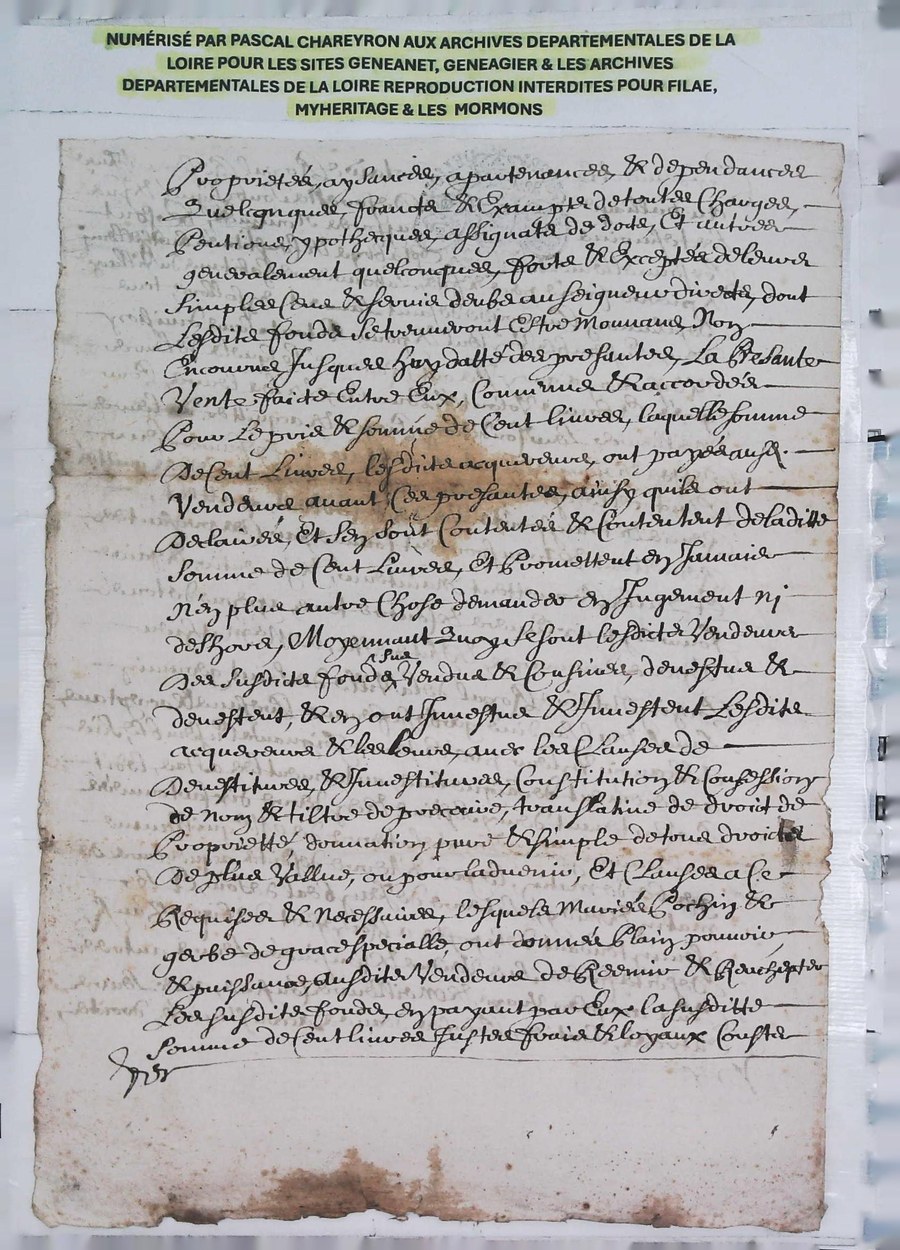 NUMÉRISÉ PAR PASCAL CHAREYRON AUX ARCHIVES DEPARTEMENTALES DE LA
LOIRE POUR LES SITES GENEANET, GENEAGIER & LES ARCHIVES
DEPARTEMENTALES DE LA LOIRE REPRODUCTION INTERDITES POUR FILAE,
MYHERITAGE & LES MORMONS
Proprietés, aysances, apartenances, & dependances
Quelconques, francs & Exampts de toutes Charges,
Pentions, ypothecques, assignats de dots, Et autres
generalement quelconques, forts & Exceptés de leurs
simples Cens & servis deubs au seigneur directe, dont
Lesdits fonds se trouveront Estre Mouvans, Non
Encourus Jusques huy datte des presantes, La Presante
Vente faicte Entre Eux, Convenue & accordée
Pour Le prix & somme de Cent livres, laquelle somme
De Cent Livres, lesdits acquereurs, ont payés ausd.
Vendeurs avant Ces presantes, ainsy quils ont
Declairés, Et sen sont Contentés & Contentent de laditte
somme de Cent Livres, Et Promettent en Jamais
N'en plus autre Chose demander en Jugement ni
dehors, Moyennant Quoy se sont lesdicts Vendeurs
Des susdicts fonds sus Vendus & Confinés, devestus &
devestent, & en ont Investus & Investent Lesdits
acquereurs & les leurs, avec les Clauses de
Devestitures, & Investitures, Constitution & Confession
de Nom & tiltre de precaire, translative de droit de
Proprietté, donnation pure & simple de tous droicts
De plus Vallue, ou pour ladvenir, Et Clauses a Ce
Requises & Necessaires, lesquels Mariés Pochin &
gerbe de grace specialle, ont donnés Plain pouvoir
& puissance, ausdits Vendeurs de Reemir & Rachepter
Les susdits fonds, en payant par Eux la susditte
somme de Cent livres Justes frais & loyaux Cousts